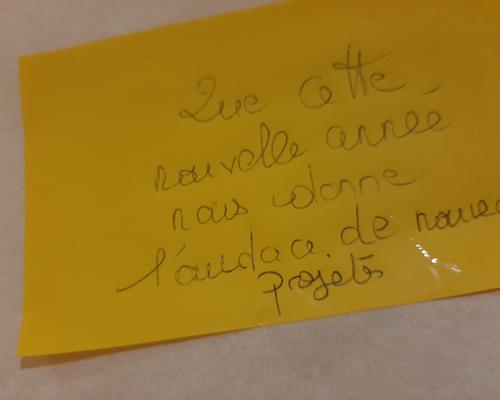 Que cette
nouvelle année
nous donne
l'audace de nouve
projets